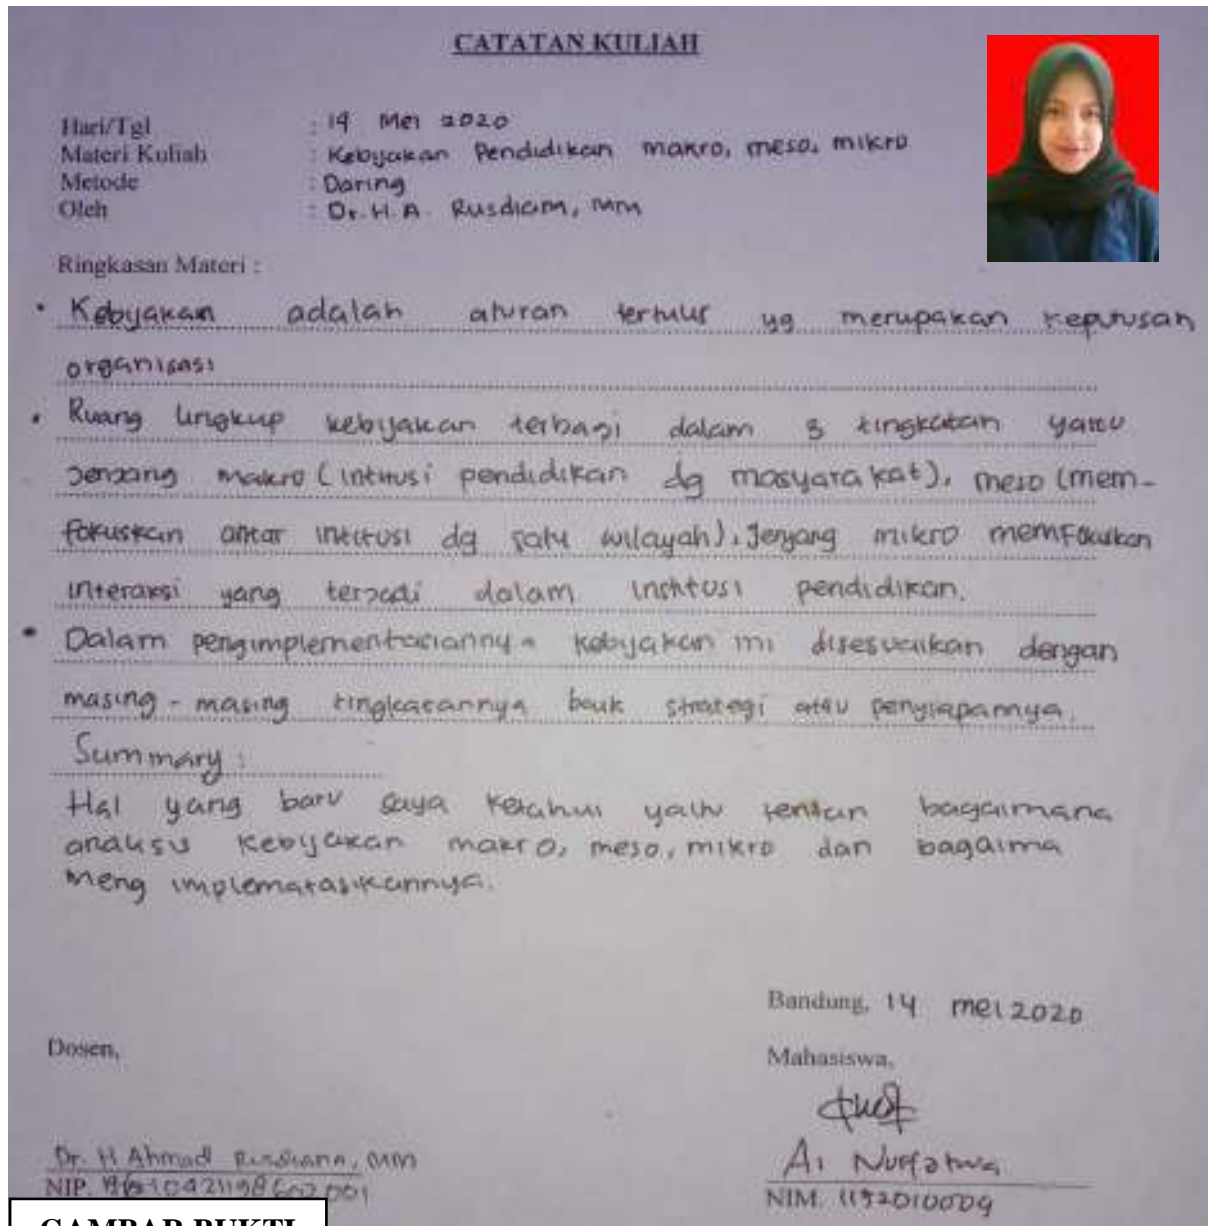 CATATAN KULIAH
Hari/Tgl : 14 Mei 2020
Materi Kuliah : Kebijakan Pendidikan makro, meso, mikro
Metode : Daring
Oleh : Dr. H. A. Rusdiana, MM
Ringkasan Materi :
• Kebijakan adalah aturan tertulis yg merupakan keputusan
organisasi
• Ruang lingkup kebijakan terbagi dalam 3 tingkatan yaitu
Jenjang makro (intitusi pendidikan dg masyarakat), meso (mem-
fokuskan antar intitusi dg satu wilayah). Jenjang mikro memfokuskan
interaksi yang terjadi dalam institusi pendidikan.
• Dalam pengimplementasiannya kebijakan ini disesuaikan dengan
masing-masing tingkatannya baik strategi atau penyiapannya.
Summary :
Hal yang baru saya ketahui yaitu tentan bagaimana
analisis kebijakan makro, meso, mikro dan bagaima
meng implematasikannya.
Bandung, 14 mei 2020
Dosen,
Mahasiswa,
Dr. H Ahmad Rusdiana, MM
Ai Nurfatwa
NIP.
NIM. 1192010009
GAMBAR BUKTI